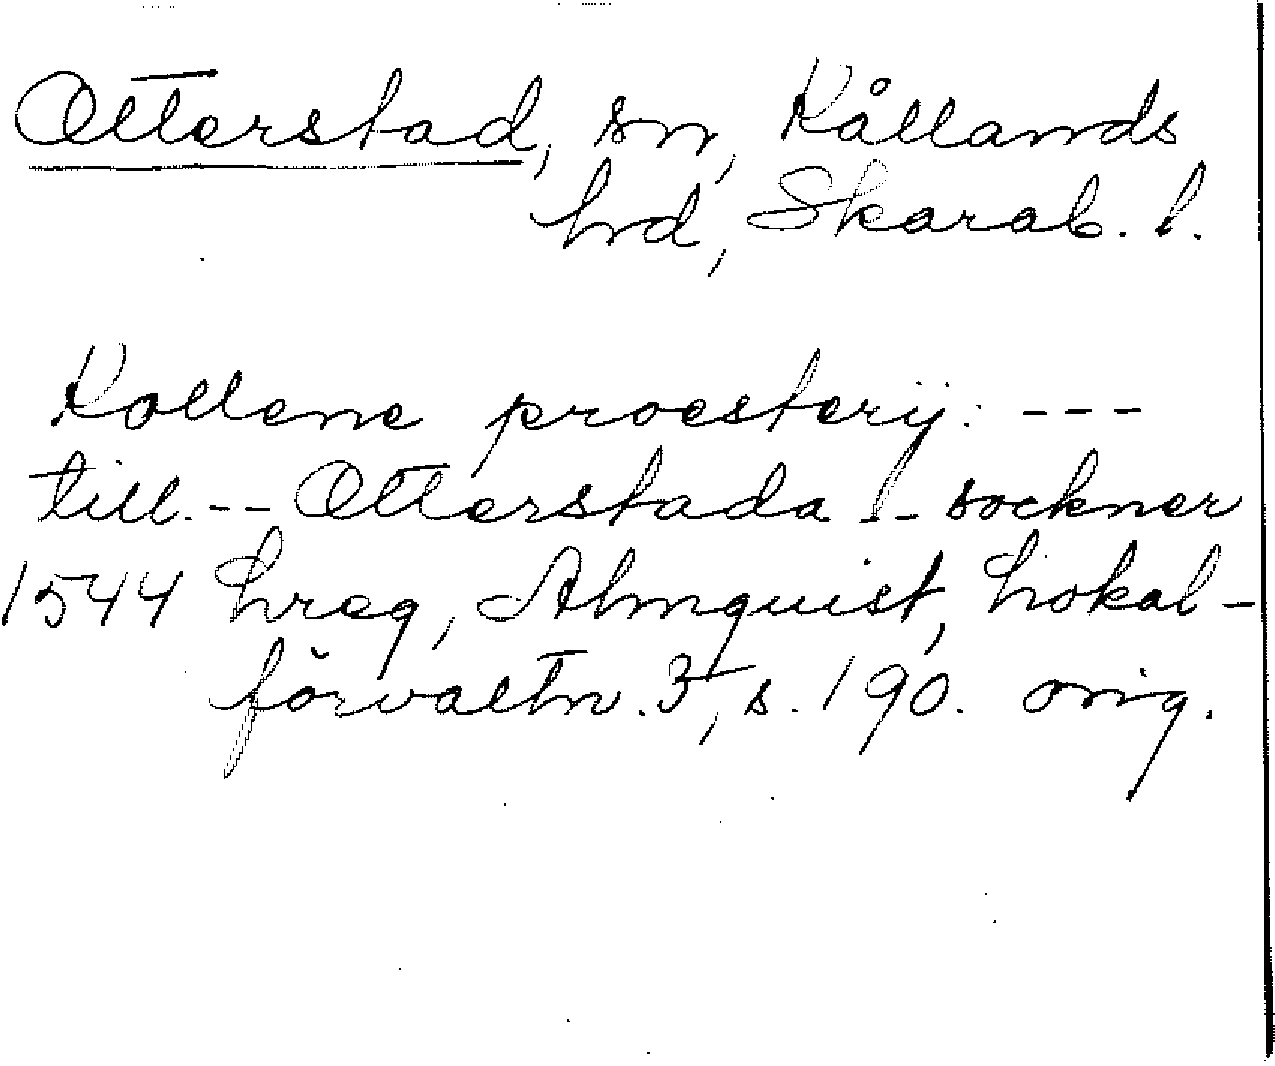 Otterstad, sn, Kållands
hd, Skarab. l.
Kollene proesterij: ---
till. -- Otterstada -- sockner
1544 hreg, Almquist, Lokal-
förvaltn. 3, s. 190. orig.